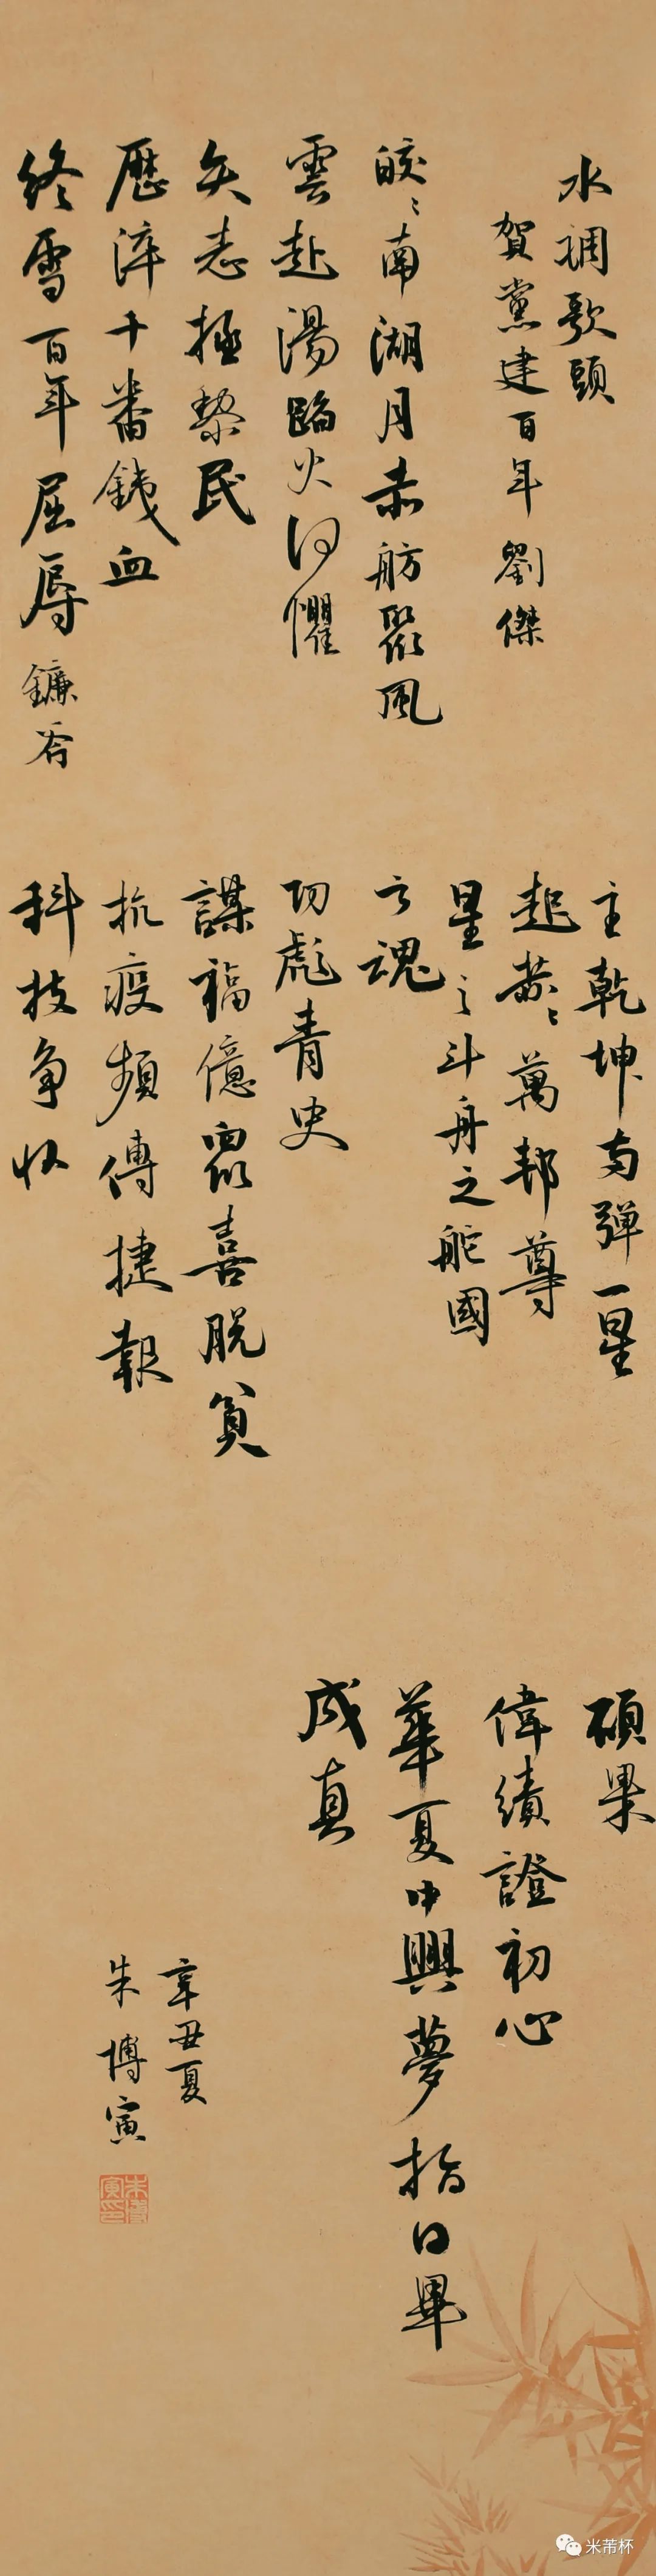 水調歌頭
賀黨建百年劉傑
皎〻南湖月赤舫聚風
雲赴湯蹈火何懼
矢志拯黎民
歷淬千番鐵血
終雪百年屈辱鐮斧
主乾坤兩彈一星
起赫〻萬邦尊
星之斗舟之舵國
之魂
功彪青史
謀福億眾喜脫貧
抗疫頻傳捷報
科技争收
碩果
偉績證初心
華夏中興夢指日畢
成真
辛丑夏
朱博寅
朱博寅印
米芾杯